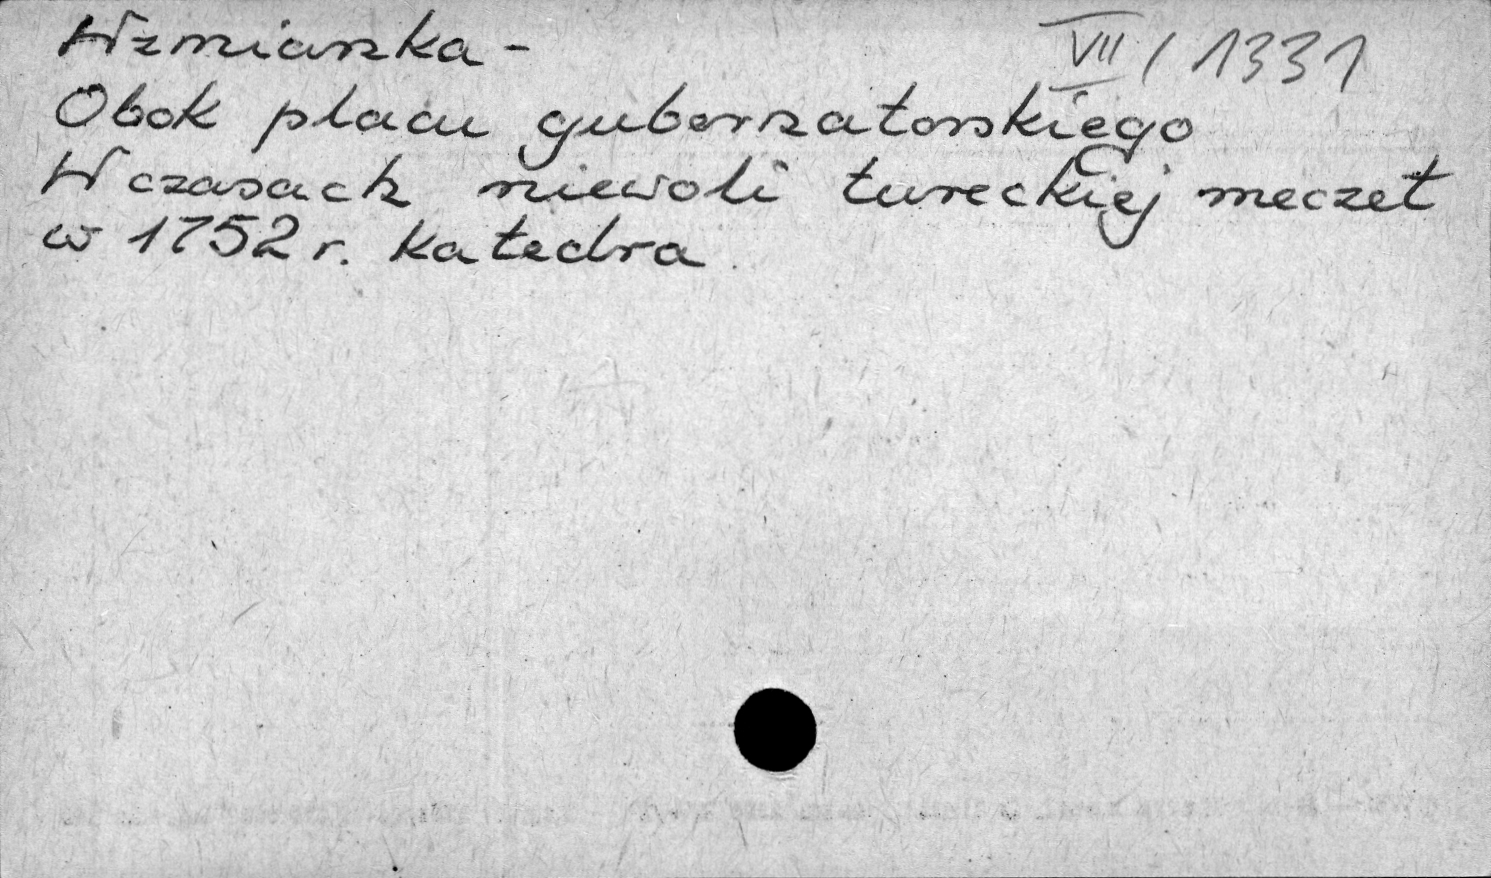 Wzmianka - VII / 1331
Obok placu gubernatorskiego
W czasach niewoli tureckiej meczet
w 1752 r. katedra